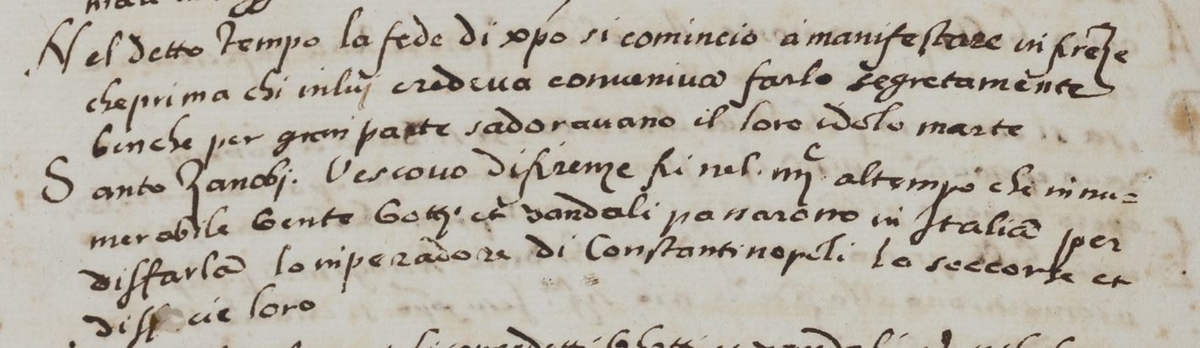 Nel detto Tempo la fede di xpo si comincio a manifestare in firēze
che prima chi in luj credeva conueniua farlo segretamente
benche per gran parte sadorauano il loro idolo marte
Santo Zanobj. Vescouo di firenze fu nel. iiijc al tempo che innu=
merabile Gente Gottj et vandali passarono in Italia per
disfarla lo inperadore di Constantinopoli la soccorse et
loro